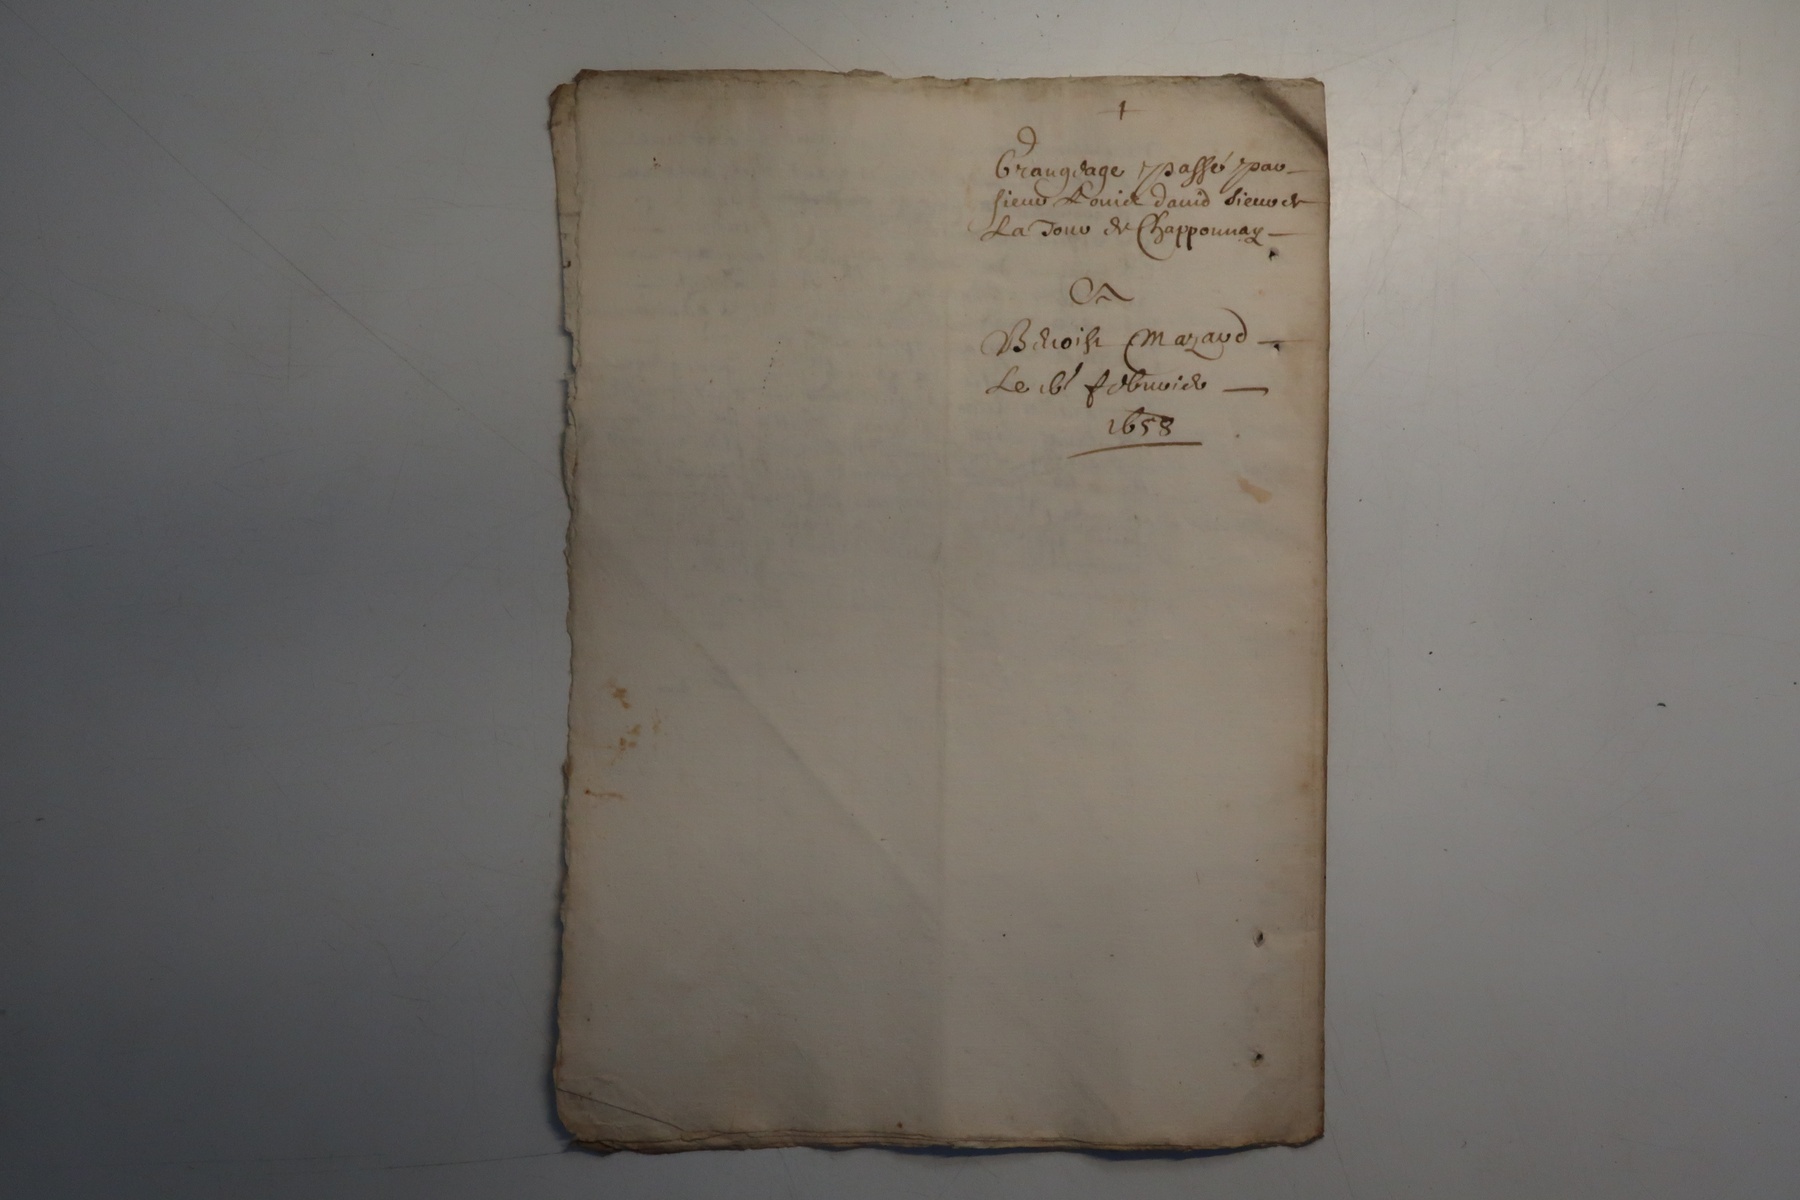 Grangeage passé par
sieur Louis david sieur de
La Tour de Chapponnay
A
Benoist Mazard
Le febvrier
1658